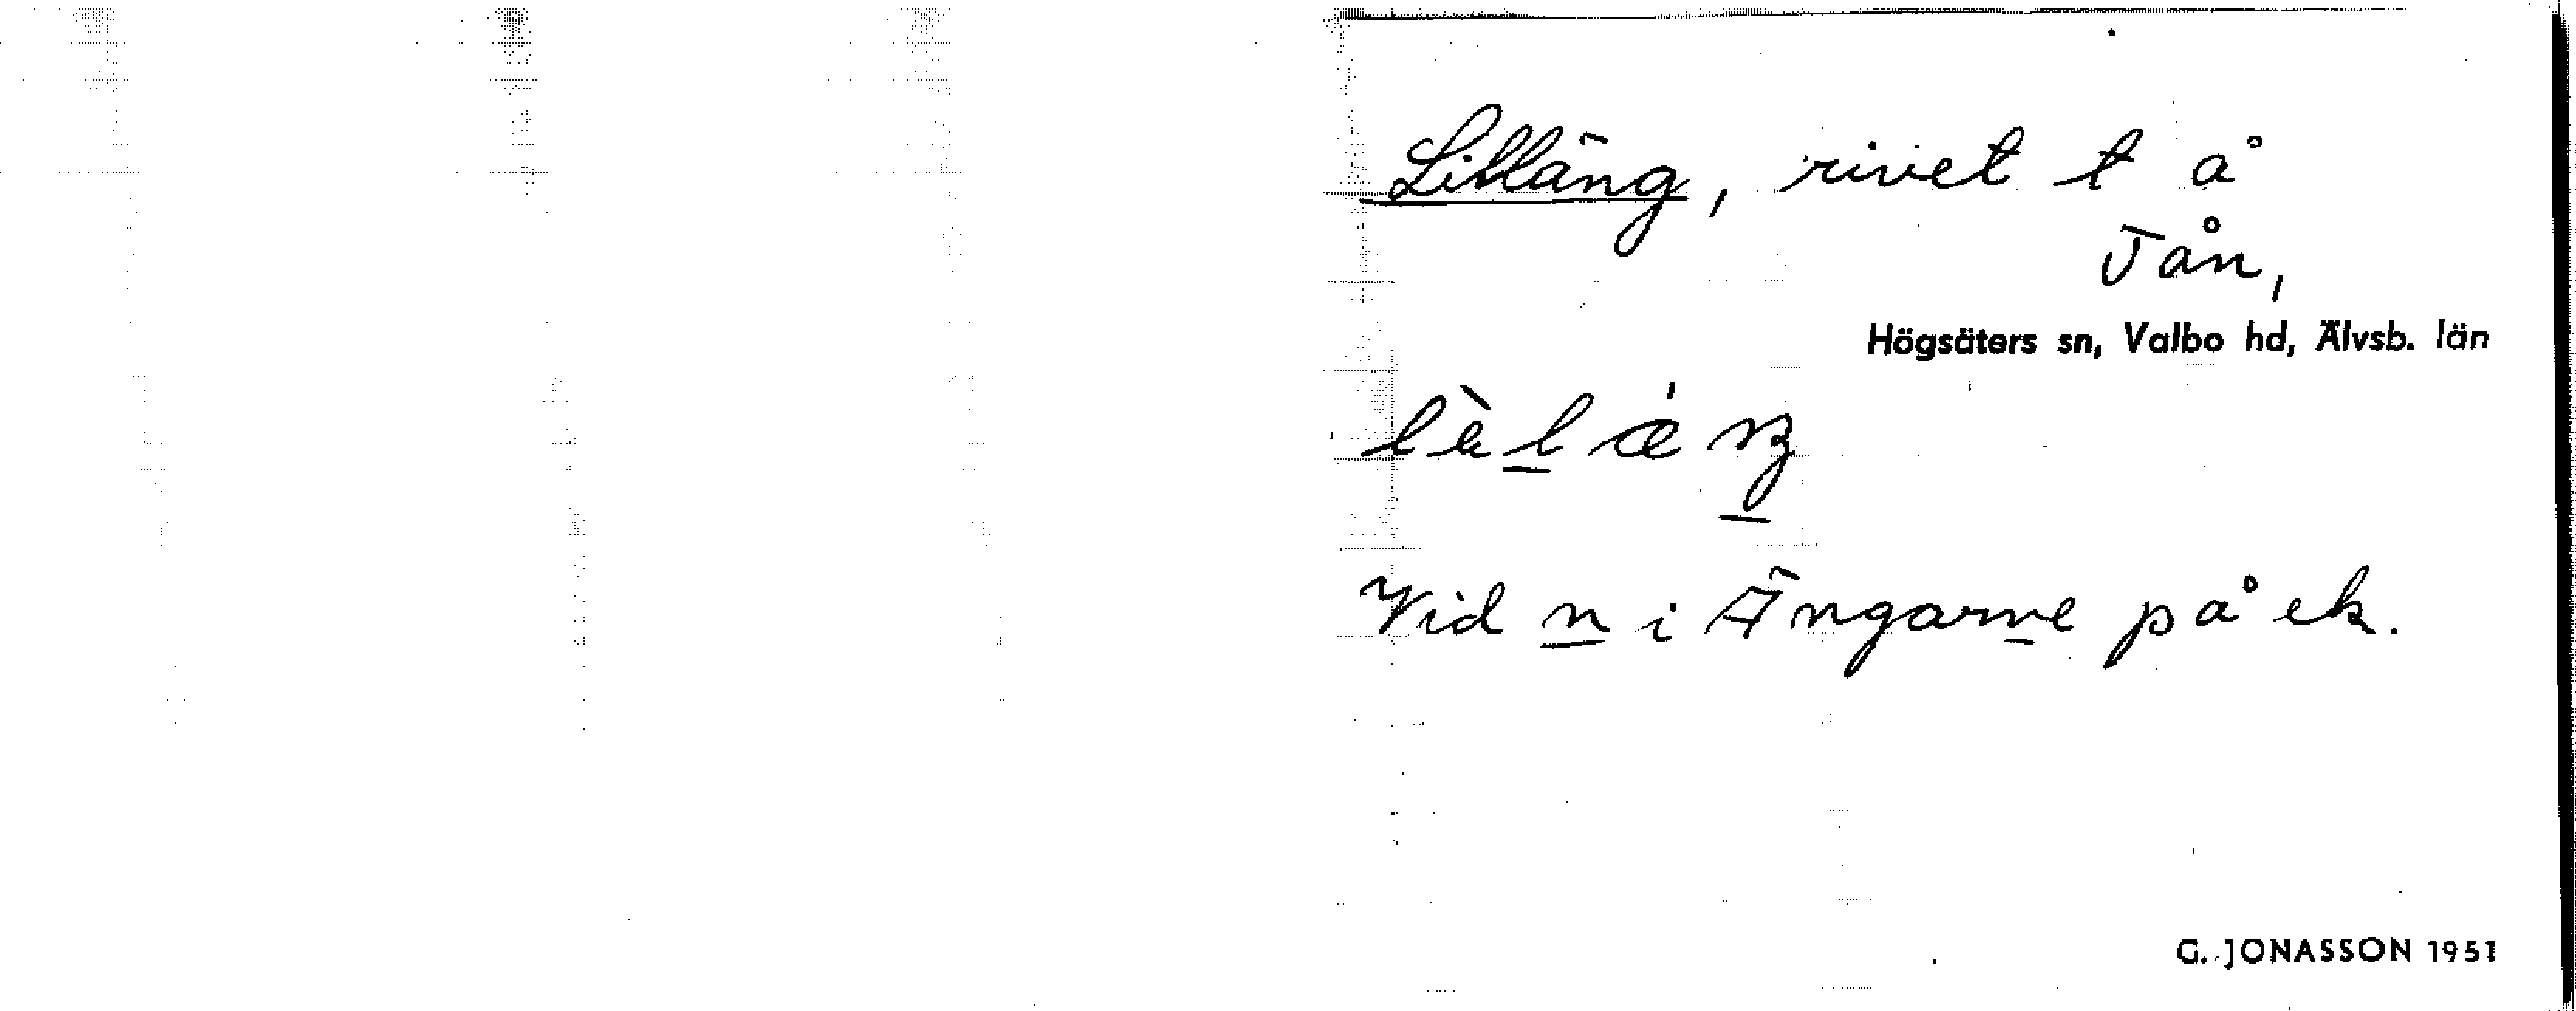 Lilläng, rivet t å
Tån,
Högsäters sn, Valbo hd, Älvsb. län
Vid n i Ängarne på ek.
G. JONASSON 1951